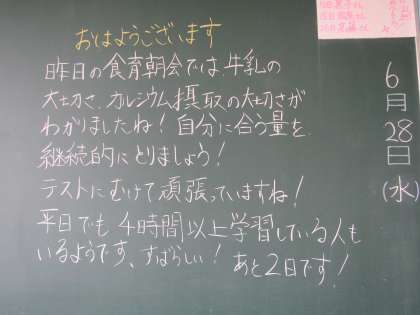 おはようございます
昨日の食育朝会では、牛乳の
大切さ、カルシウム摂取の大切さが
わかりましたね！自分に合う量を
継続的にとりましょう！
テストにむけて頑張っていますね！
平日でも4時間以上学習している人も
いるようです、すばらしい！ あと2日です！
6月28日(水)